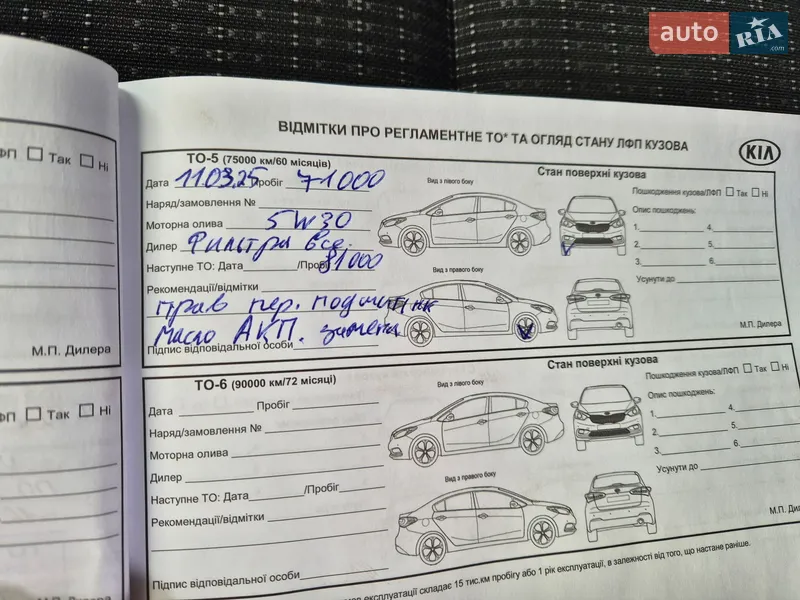 auto RIA .com
ВІДМІТКИ ПРО РЕГЛАМЕНТНЕ ТО* ТА ОГЛЯД СТАНУ ЛФП КУЗОВА
KIA
ФП Так Ні
ТО-5 (75000 км/60 місяців)
Дата 110325 Пробіг 71000
Наряд/замовлення №
Моторна олива 5W30
Дилер Фильтра все.
Наступне ТО: Дата /Пробіг 81000
Рекомендації/відмітки
прав пер. подшипник
масло АКП. замена
Підпис відповідальної особи
Вид з лівого боку
Вид з правого боку
Стан поверхні кузова
Пошкодження кузова/ЛФП Так Ні
Опис пошкоджень:
1. 4.
2. 5.
3. 6.
Усунути до
М.П. Дилера
М.П. Дилера
ФП Так Ні
ТО-6 (90000 км/72 місяці)
Дата Пробіг
Наряд/замовлення №
Моторна олива
Дилер
Наступне ТО: Дата /Пробіг
Рекомендації/відмітки
Підпис відповідальної особи
Вид з лівого боку
Вид з правого боку
Стан поверхні кузова
Пошкодження кузова/ЛФП Так Ні
Опис пошкоджень:
1. 4.
2. 5.
3. 6.
Усунути до
М.П. Дилера
М.П. Дилера
експлуатації складає 15 тис.км пробігу або 1 рік експлуатації, в залежності від того, що настане раніше.